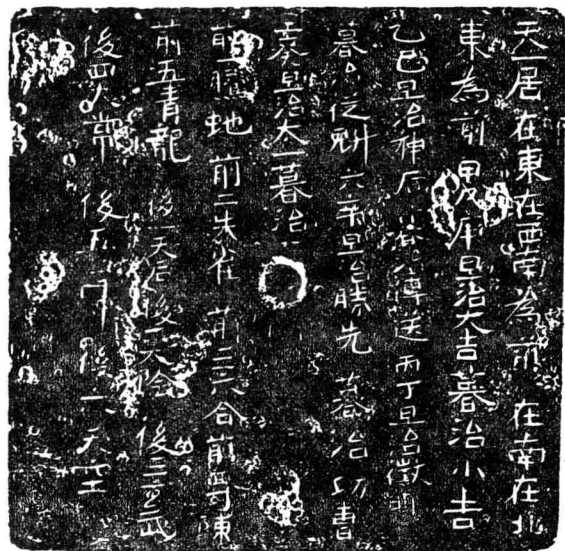 天一居在東在西南為前 在南在北
東為前 甲戊庚旦治大吉暮治小吉
乙己旦治神后暮治傳送 丙丁旦治徵明
暮治從魁 六辛旦治勝先 暮治功曹
癸旦治大一暮治
前一騰蛇 前二朱雀 前三六合 前四勾陳
前五青龍 後一天后 後二太陰 後三玄武
後四太常 後五 後六天空